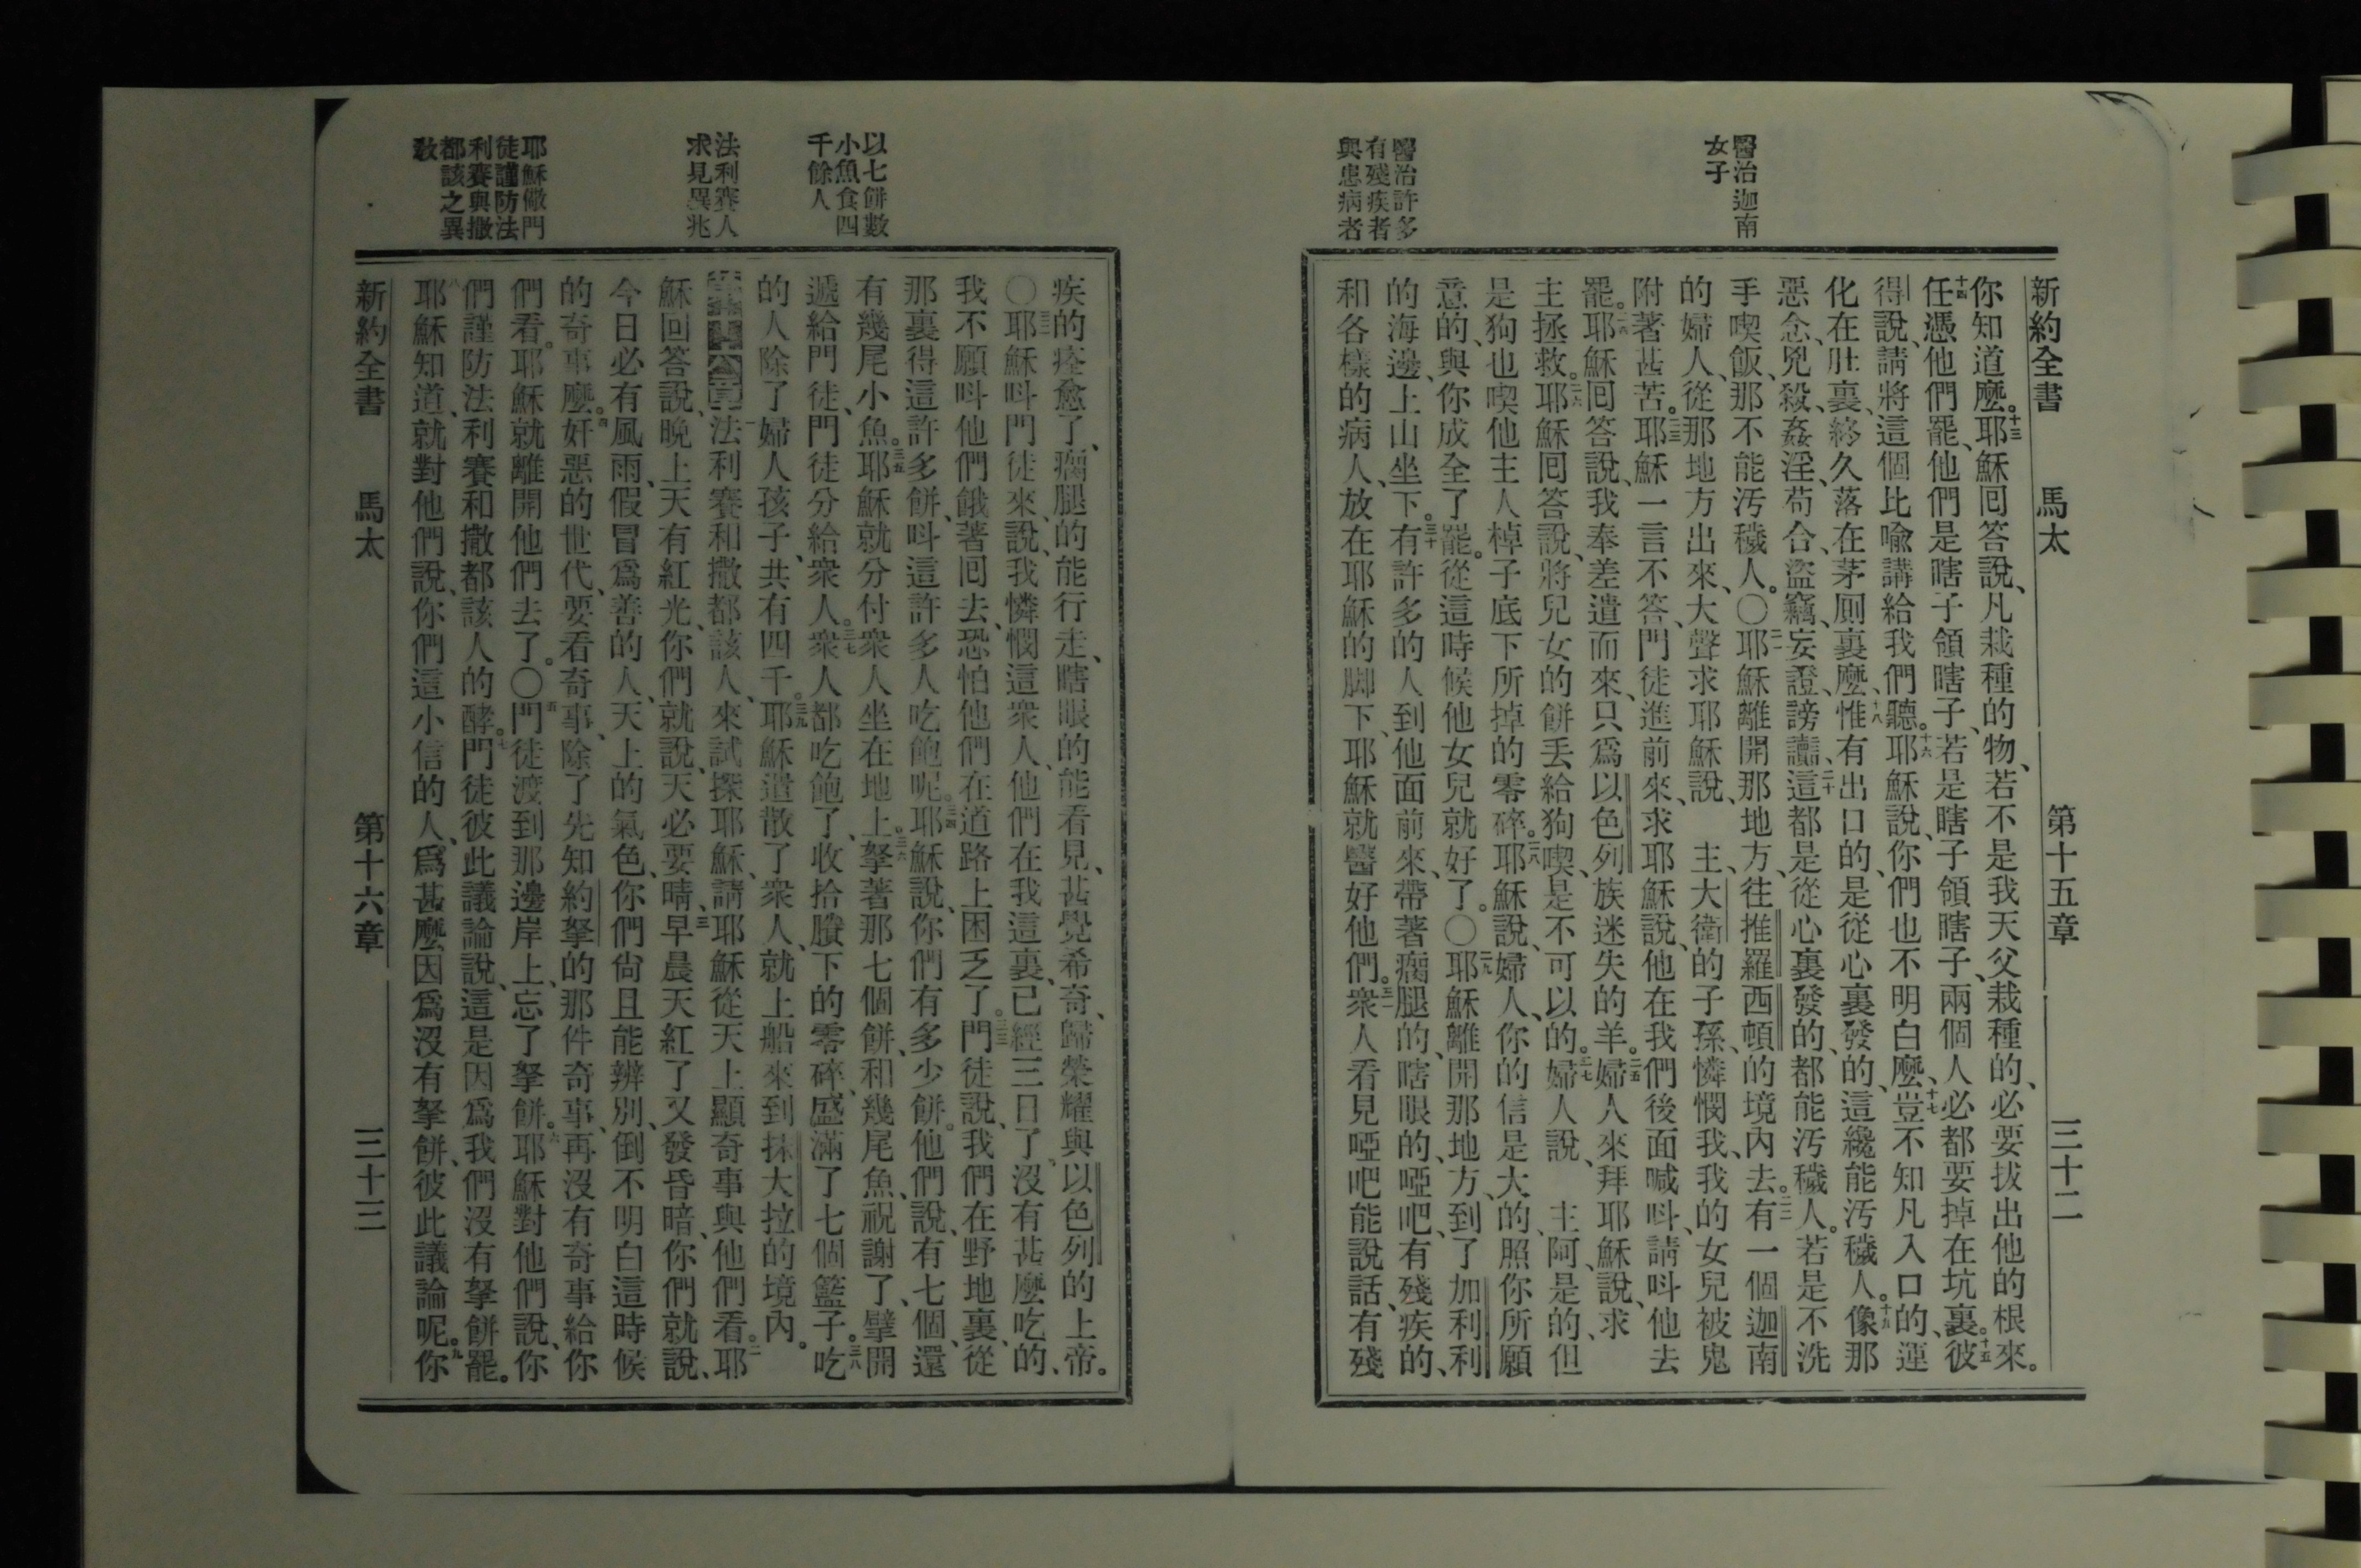 醫治迦南
女子
醫治許多
有殘疾者
與患病者
新約全書 馬太 第十五章 三十二
你知道麼。十三耶穌囘答說、凡栽種的物、若不是我天父栽種的、必要拔出他的根來。
十四任憑他們罷、他們是瞎子領瞎子、若是瞎子領瞎子、兩個人必都要掉在坑裏。十五彼
得說、請將這個比喩講給我們聽。十六耶穌說、你們也不明白麼、十七豈不知凡入口的、運
化在肚裏、終久落在茅厠裏麼、十八惟有出口的、是從心裏發的、這纔能汚穢人。十九像那
惡念、兇殺、姦淫、苟合、盜竊、妄證、謗讟、二十這都是從心裏發的、都能汚穢人。若是不洗
手喫飯、那不能汚穢人。〇二一耶穌離開那地方、往推羅西頓的境內去。二二有一個迦南
的婦人、從那地方出來、大聲求耶穌說、主大衛的子孫、憐憫我、我的女兒被鬼
附著甚苦。二三耶穌一言不答、門徒進前來、求耶穌說、他在我們後面喊呌、請呌他去
罷。二四耶穌囘答說、我奉差遣而來、只爲以色列族迷失的羊。二五婦人來拜耶穌說、求
主拯救。二六耶穌囘答說、將兒女的餅丢給狗喫、是不可以的。二七婦人說、主阿、是的、但
是狗也喫他主人棹子底下所掉的零碎。二八耶穌說、婦人、你的信是大的、照你所願
意的、與你成全了罷。從這時候他女兒就好了。〇二九耶穌離開那地方、到了加利利
的海邊、上山坐下。三十有許多的人到他面前來、帶著瘸腿的、瞎眼的、啞吧、有殘疾的、
和各樣的病人、放在耶穌的脚下、耶穌就醫好他們。三一衆人看見啞吧能說話、有殘
以七餅數
小魚食四
千餘人
法利賽人
求見異兆
耶穌儆門
徒謹防法
利賽與撒
都該之異
敎
疾的痊愈了、瘸腿的能行走、瞎眼的能看見、甚覺希奇、歸榮耀與以色列的上帝。
〇三二耶穌呌門徒來、說、我憐憫這衆人、他們在我這裏、已經三日了、沒有甚麼吃的、
我不願呌他們餓著囘去、恐怕他們在道路上困乏了。三三門徒說、我們在野地裏、從
那裏得這許多餅、呌這許多人吃飽呢。三四耶穌說、你們有多少餅。他們說、有七個、還
有幾尾小魚。三五耶穌就分付衆人坐在地上。三六拏著那七個餅、和幾尾魚、祝謝了、擘開
遞給門徒、門徒分給衆人。三七衆人都吃飽了、收拾賸下的零碎、盛滿了七個籃子。三八吃
的人除了婦人孩子、共有四千。三九耶穌遣散了衆人、就上船來到抹大拉的境內。
第十六章一法利賽和撒都該人、來試探耶穌、請耶穌從天上顯奇事與他們看。二耶
穌回答說、晚上天有紅光、你們就說、天必要晴、三早晨天紅了又發昏暗、你們就說、
今日必有風雨、假冒爲善的人、天上的氣色、你們尙且能辨別、倒不明白這時候
的奇事麼。四奸惡的世代、要看奇事、除了先知約拏的那件奇事、再沒有奇事給你
們看。耶穌就離開他們去了。〇五門徒渡到那邊岸上、忘了拏餅。六耶穌對他們說、你
們謹防法利賽和撒都該人的酵。七門徒彼此議論說、這是因爲我們沒有拏餅罷。
八耶穌知道、就對他們說、你們這小信的人、爲甚麼因爲沒有拏餅、彼此議論呢。九你
新約全書 馬太 第十六章 三十三